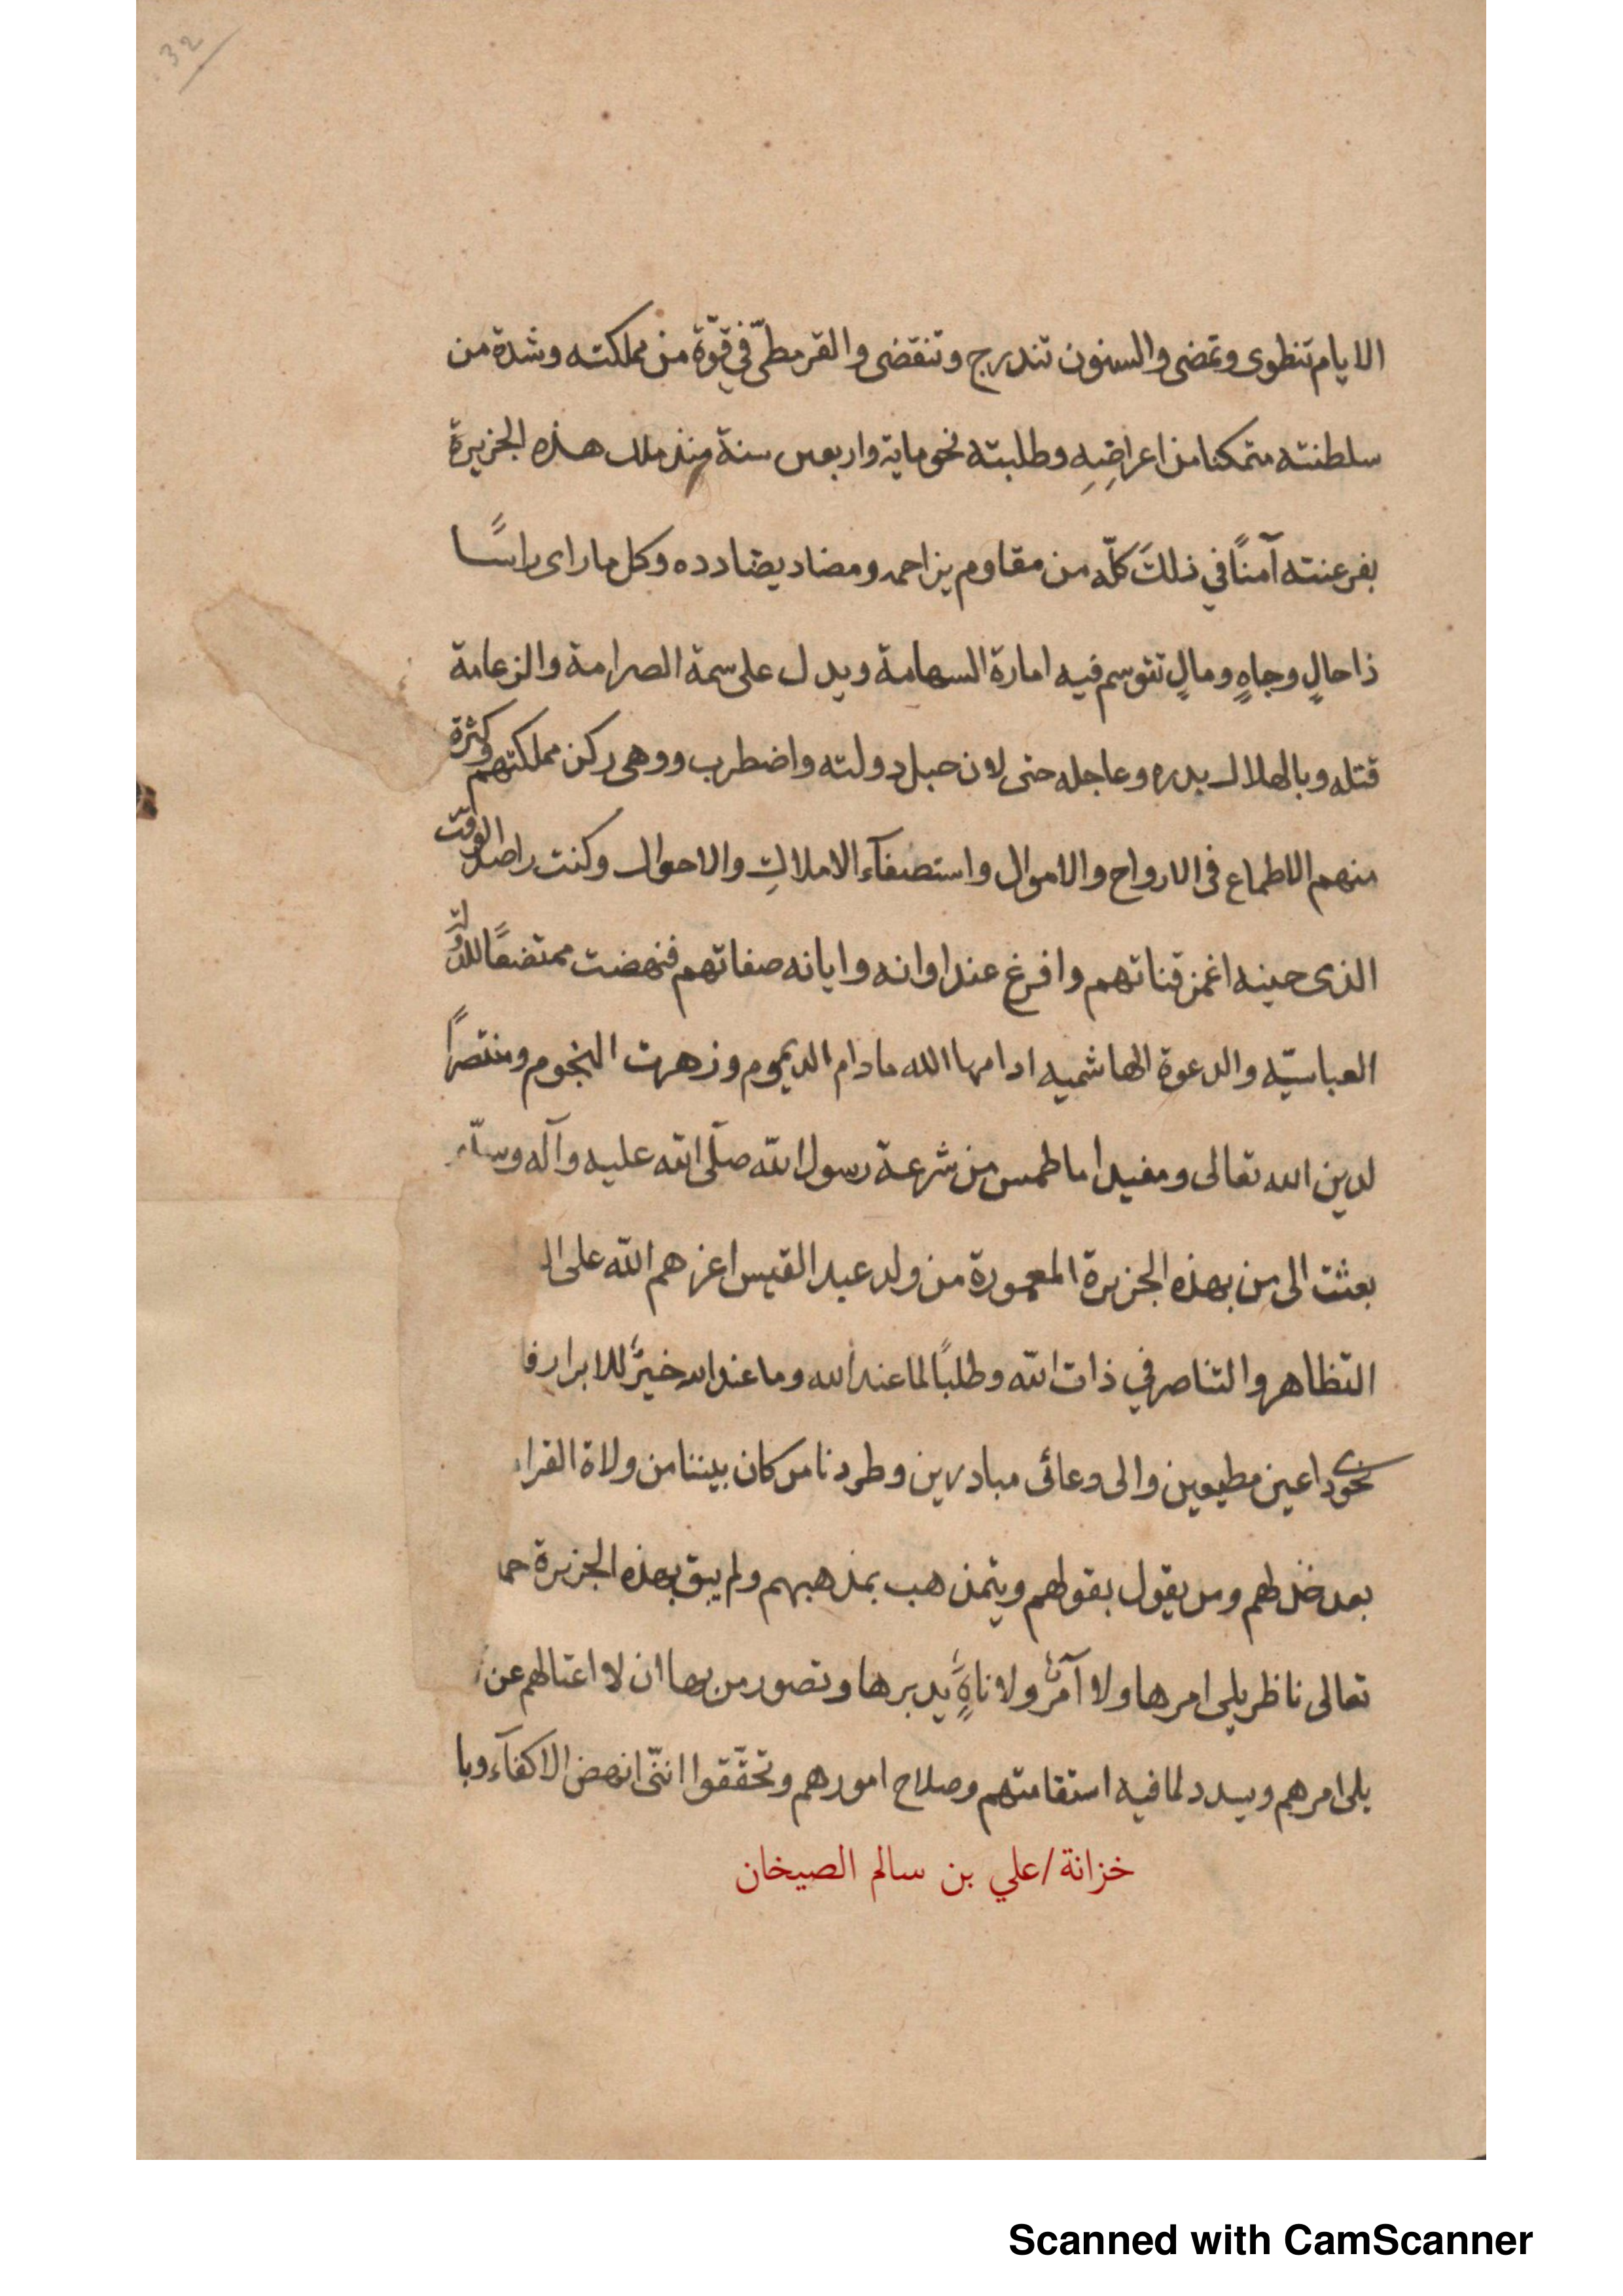 32
الايام تنطوى وتمضى والسنون تندرج وتنقضى والقرمطىّ في قوّة من مملكته وشدة من
سلطنته متمكنا من اعراضِهِ وطلبته نحو ماية واربعين سنة منذ ملك هذه الجزيرة
بفرعنته آمنًا في ذلكَ كلّه من مقاوم يزاحمه ومضاد يضادده وكل ما راى راسًا
ذا حالٍ وجاهٍ ومالٍ تتوسم فيه امارة السهامة ويدل على سمة الصرامة والزعامة
قتله وبالهلاك بدره وعاجله حتى لان حبل دولته واضطرب ووهى ركن مملكتهم وكثرة
منهم الاطماع فى الارواح والاموال واستصفآء الاملاكِ والاحوال وكنت راصد الوقت
الذى حينه اغمز قناتهم وافرغ عند اوانه وايانه صفاتهم فنهضت ممتضعًا
العباسيّه والدعوة الهاشميه ادامها الله ما دام الديموم وزهرت النجوم ومنتصرًا
لدين الله تعالى ومفيدا ما طمس من شرعة رسول الله صلّى الله عليه وآله وسلّم
بعثت الى من بهذه الجزيرة المعمورة من ولد عبد القيس اعزهم الله على
التظاهر والتناصر في ذات الله وطلبًا لما عند الله وما عند الله خيرٌ للابرار
نحوى داعين مطيعين والى دعائى مبادرين وطردنا من كان بيننا من ولاة
بعد خذلهم ومن يقول بقولهم ويتمذهب بمذهبهم ولم يبق بهذه الجزيرة
تعالى ناظر يلى امرها ولا آمرٌ ولا ناهٍ يدبرها وتصور من بها ان لا اعتالهم عن
يلى امرهم ويسدد لما فيه استقامتهم وصلاح امورهم وتحقّقوا اننّى انهض الاكفآء
خزانة/علي بن سالم الصيخان
Scanned with CamScanner